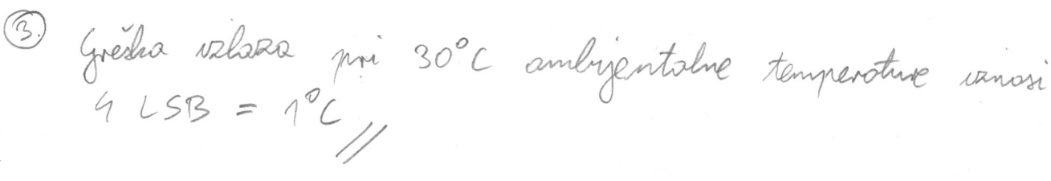 3. Greška izlaza pri 30°C ambijentalne temperature iznosi
4 LSB = 1°C //